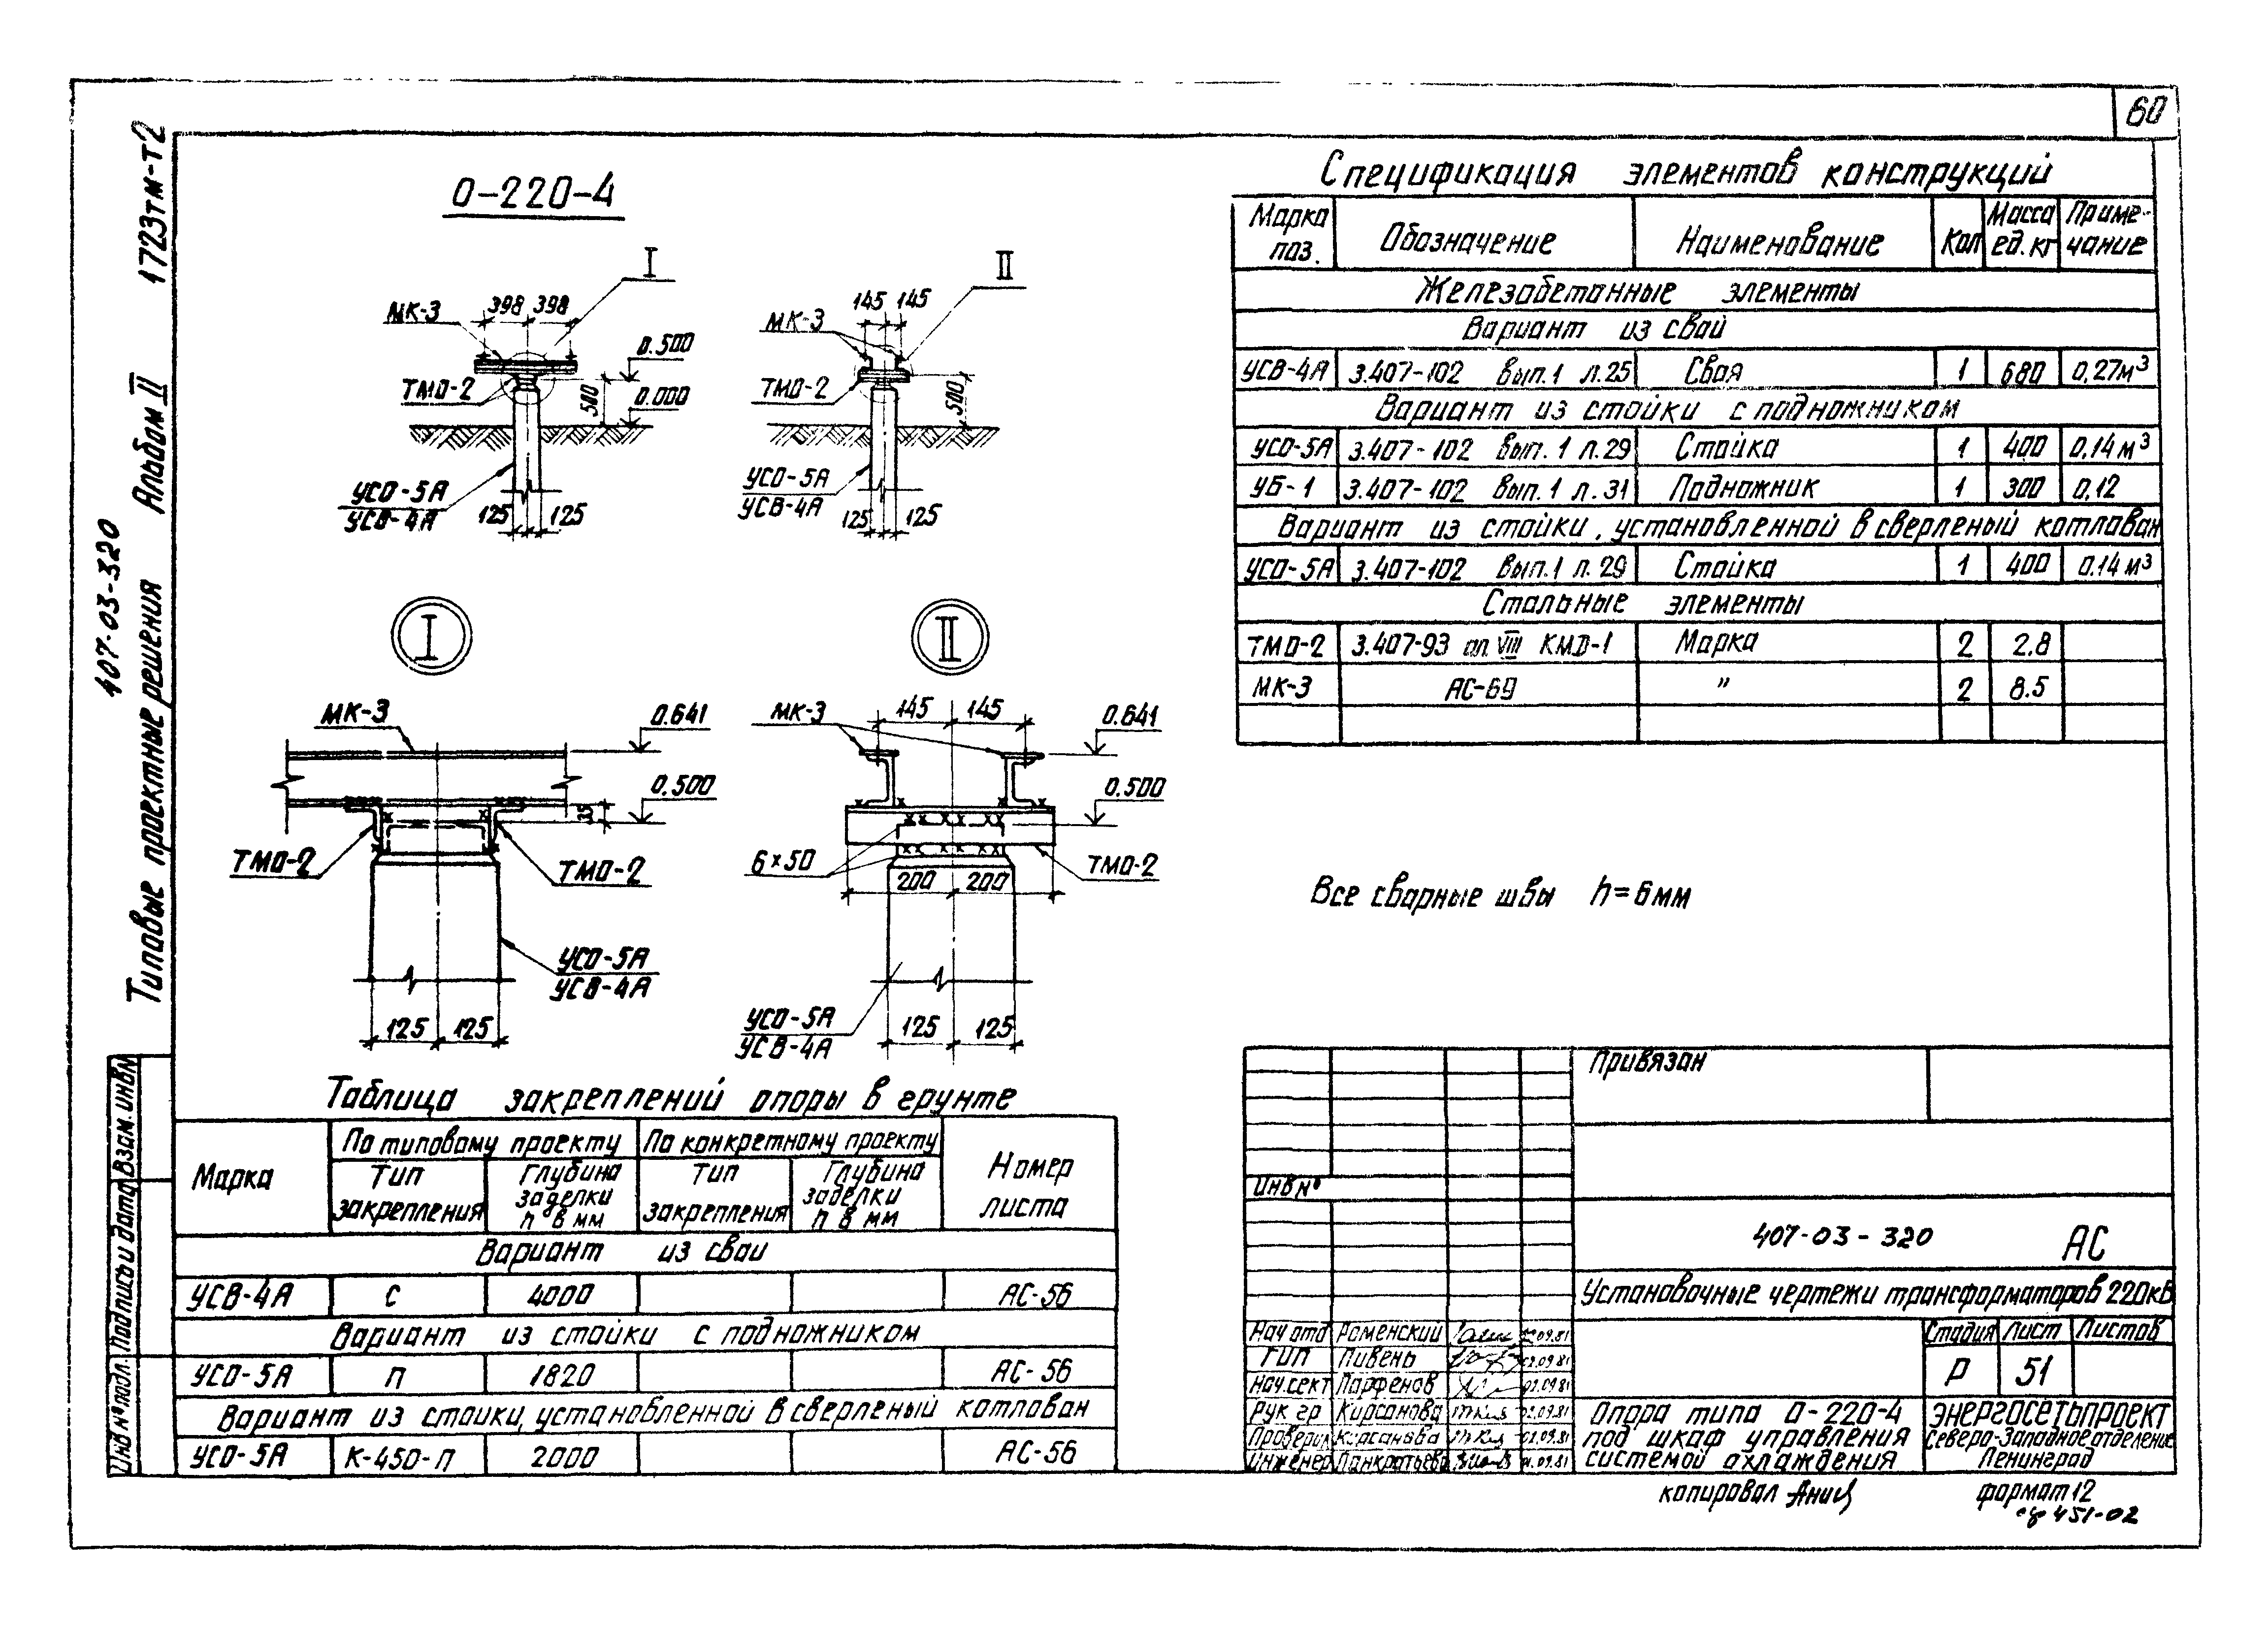 60
407-03-320
Типовые проектные решения Альбом II 1723тм-т2
О-220-4
I
МК-3
398 398
0.500
ТМО-2
500
0.000
УСО-5А
УСВ-4А
125 125
II
145 145
МК-3
ТМО-2
500
УСО-5А
УСВ-4А
125 125
I
МК-3
0.641
0.500
35
ТМО-2
ТМО-2
УСО-5А
УСВ-4А
125 125
II
МК-3
145 145
0.641
0.500
6×50
ТМО-2
200 200
УСО-5А
УСВ-4А
125 125
Спецификация элементов конструкций
Марка поз. Обозначение Наименование Кол Масса ед. кг Приме-чание
Железобетонные элементы
Вариант из свай
УСВ-4А 3.407-102 вып.1 л.25 Свая 1 680 0,27м³
Вариант из стойки с подножником
УСО-5А 3.407-102 вып.1 л.29 Стойка 1 400 0,14м³
УБ-1 3.407-102 вып.1 л.31 Подножник 1 300 0,12
Вариант из стойки, установленной в сверленый котлован
УСО-5А 3.407-102 вып.1 л.29 Стойка 1 400 0.14м³
Стальные элементы
ТМО-2 3.407-93 ал. VIII КМД-1 Марка 2 2.8
МК-3 АС-69 " 2 8.5
Все сварные швы h=6мм
Таблица закреплений опоры в грунте
Марка По типовому проекту По конкретному проекту Номер листа
Тип закрепления Глубина заделки h в мм Тип закрепления Глубина заделки h в мм
Вариант из сваи
УСВ-4А С 4000 АС-56
Вариант из стойки с подножником
УСО-5А П 1820 АС-56
Вариант из стойки, установленной в сверленый котлован
УСО-5А К-450-П 2000 АС-56
Инв № подл. Подпись и дата Взам. инв №
Привязан
Инв №
407-03-320 АС
Установочные чертежи трансформаторов 220кВ
Нач отд Роменский 02.09.81
ГИП Пивень 02.09.81
Нач.сект Парфенов 02.09.81
Рук гр Кирсанова 02.09.81
Проверил Кирсанова 02.09.81
Инженер Панкратьева 01.09.81
Стадия Лист Листов
Р 51
Опора типа О-220-4
под шкаф управления
системой охлаждения
ЭНЕРГОСЕТЬПРОЕКТ
Северо-Западное отделение
Ленинград
копировал
формат 12
451-02